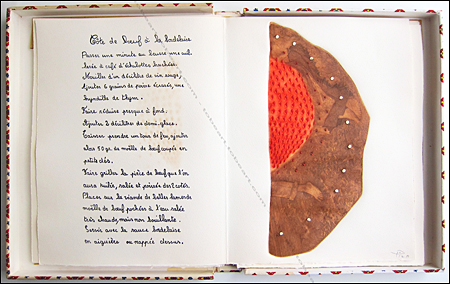 Côte de Boeuf à la bordelaise
Passer une minute au beurre une cuil
lerée à café d'échalottes hachées.
Mouiller d'un décilitre de vin rouge,
Ajouter 6 grains de poivre écrasés, une
brindille de thym.
Faire réduire presque à fond.
Ajouter 2 décilitres de demi-glace.
Laisser prendre un tour de feu, ajouter
alors 50 gr. de moëlle de boeuf coupée en
petits dés.
Faire griller la pièce de boeuf que l'on
aura huilée, salée et poivrée des 2 cotés.
Placer sur la viande de belles lames de
moëlle de boeuf pochées à l'eau salée
très chaude, mais non bouillante.
Servir avec la sauce bordelaise
en saucière ou nappée dessus.